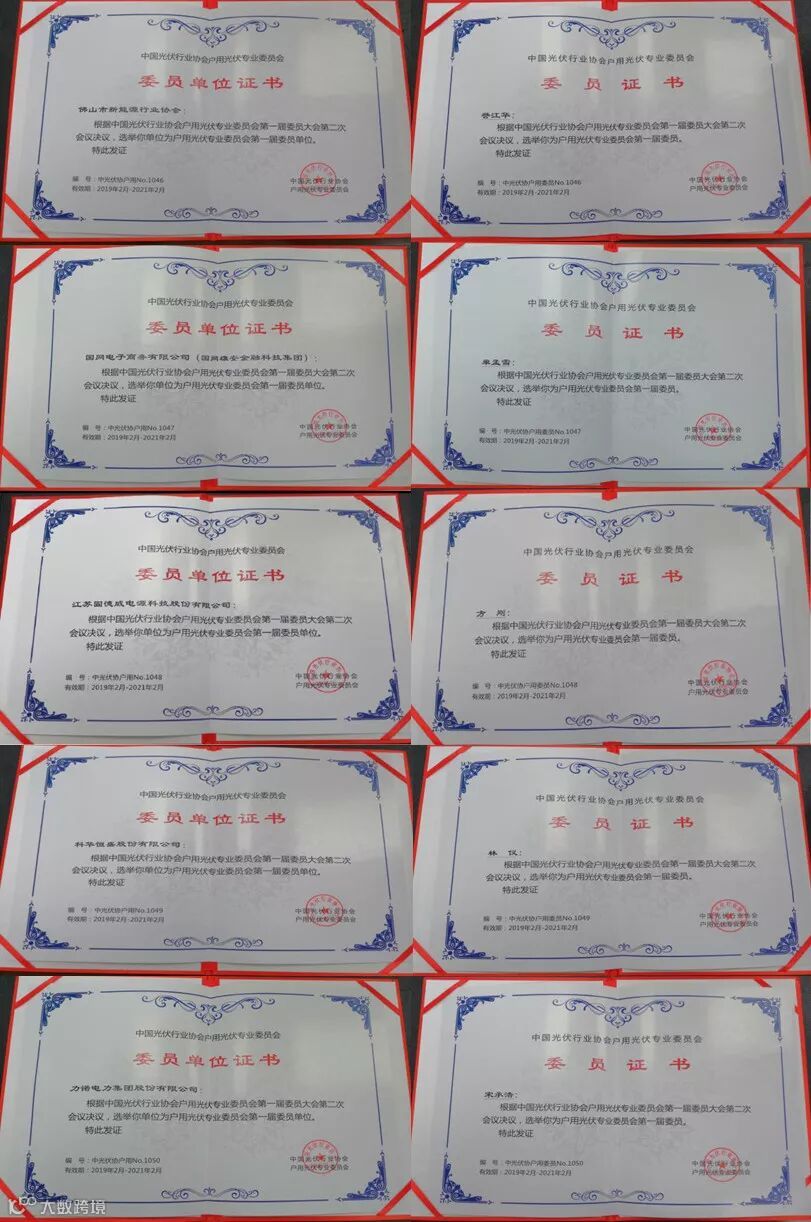 中国光伏行业协会户用光伏专业委员会
委员单位证书
佛山市新能源行业协会：
根据中国光伏行业协会户用光伏专业委员会第一届委员大会第二次
会议决议，选举你单位为户用光伏专业委员会第一届委员单位。
特此发证
编 号：中光伏协户用No.1046
有效期：2019年2月-2021年2月
中国光伏行业协会
户用光伏专业委员会
中国光伏行业协会户用光伏专业委员会
委员证书
江华：
根据中国光伏行业协会户用光伏专业委员会第一届委员大会第二次
会议决议，选举你为户用光伏专业委员会第一届委员。
特此发证
编 号：中光伏协户用委员No.1046
有效期：2019年2月-2021年2月
中国光伏行业协会
户用光伏专业委员会
中国光伏行业协会户用光伏专业委员会
委员单位证书
国网电子商务有限公司（国网雄安金融科技集团）：
根据中国光伏行业协会户用光伏专业委员会第一届委员大会第二次
会议决议，选举你单位为户用光伏专业委员会第一届委员单位。
特此发证
编 号：中光伏协户用No.1047
有效期：2019年2月-2021年2月
中国光伏行业协会
户用光伏专业委员会
中国光伏行业协会户用光伏专业委员会
委员证书
单孟雪：
根据中国光伏行业协会户用光伏专业委员会第一届委员大会第二次
会议决议，选举你为户用光伏专业委员会第一届委员。
特此发证
编 号：中光伏协户用委员No.1047
有效期：2019年2月-2021年2月
中国光伏行业协会
户用光伏专业委员会
中国光伏行业协会户用光伏专业委员会
委员单位证书
江苏固德威电源科技股份有限公司：
根据中国光伏行业协会户用光伏专业委员会第一届委员大会第二次
会议决议，选举你单位为户用光伏专业委员会第一届委员单位。
特此发证
编 号：中光伏协户用No.1048
有效期：2019年2月-2021年2月
中国光伏行业协会
户用光伏专业委员会
中国光伏行业协会户用光伏专业委员会
委员证书
方 刚：
根据中国光伏行业协会户用光伏专业委员会第一届委员大会第二次
会议决议，选举你为户用光伏专业委员会第一届委员。
特此发证
编 号：中光伏协户用委员No.1048
有效期：2019年2月-2021年2月
中国光伏行业协会
户用光伏专业委员会
中国光伏行业协会户用光伏专业委员会
委员单位证书
科华恒盛股份有限公司：
根据中国光伏行业协会户用光伏专业委员会第一届委员大会第二次
会议决议，选举你单位为户用光伏专业委员会第一届委员单位。
特此发证
编 号：中光伏协户用No.1049
有效期：2019年2月-2021年2月
中国光伏行业协会
户用光伏专业委员会
中国光伏行业协会户用光伏专业委员会
委员证书
林 仪：
根据中国光伏行业协会户用光伏专业委员会第一届委员大会第二次
会议决议，选举你为户用光伏专业委员会第一届委员。
特此发证
编 号：中光伏协户用委员No.1049
有效期：2019年2月-2021年2月
中国光伏行业协会
户用光伏专业委员会
中国光伏行业协会户用光伏专业委员会
委员单位证书
力诺电力集团股份有限公司：
根据中国光伏行业协会户用光伏专业委员会第一届委员大会第二次
会议决议，选举你单位为户用光伏专业委员会第一届委员单位。
特此发证
编 号：中光伏协户用No.1050
有效期：2019年2月-2021年2月
中国光伏行业协会
户用光伏专业委员会
中国光伏行业协会户用光伏专业委员会
委员证书
宋承浩：
根据中国光伏行业协会户用光伏专业委员会第一届委员大会第二次
会议决议，选举你为户用光伏专业委员会第一届委员。
特此发证
编 号：中光伏协户用委员No.1050
有效期：2019年2月-2021年2月
中国光伏行业协会
户用光伏专业委员会
大数跨境